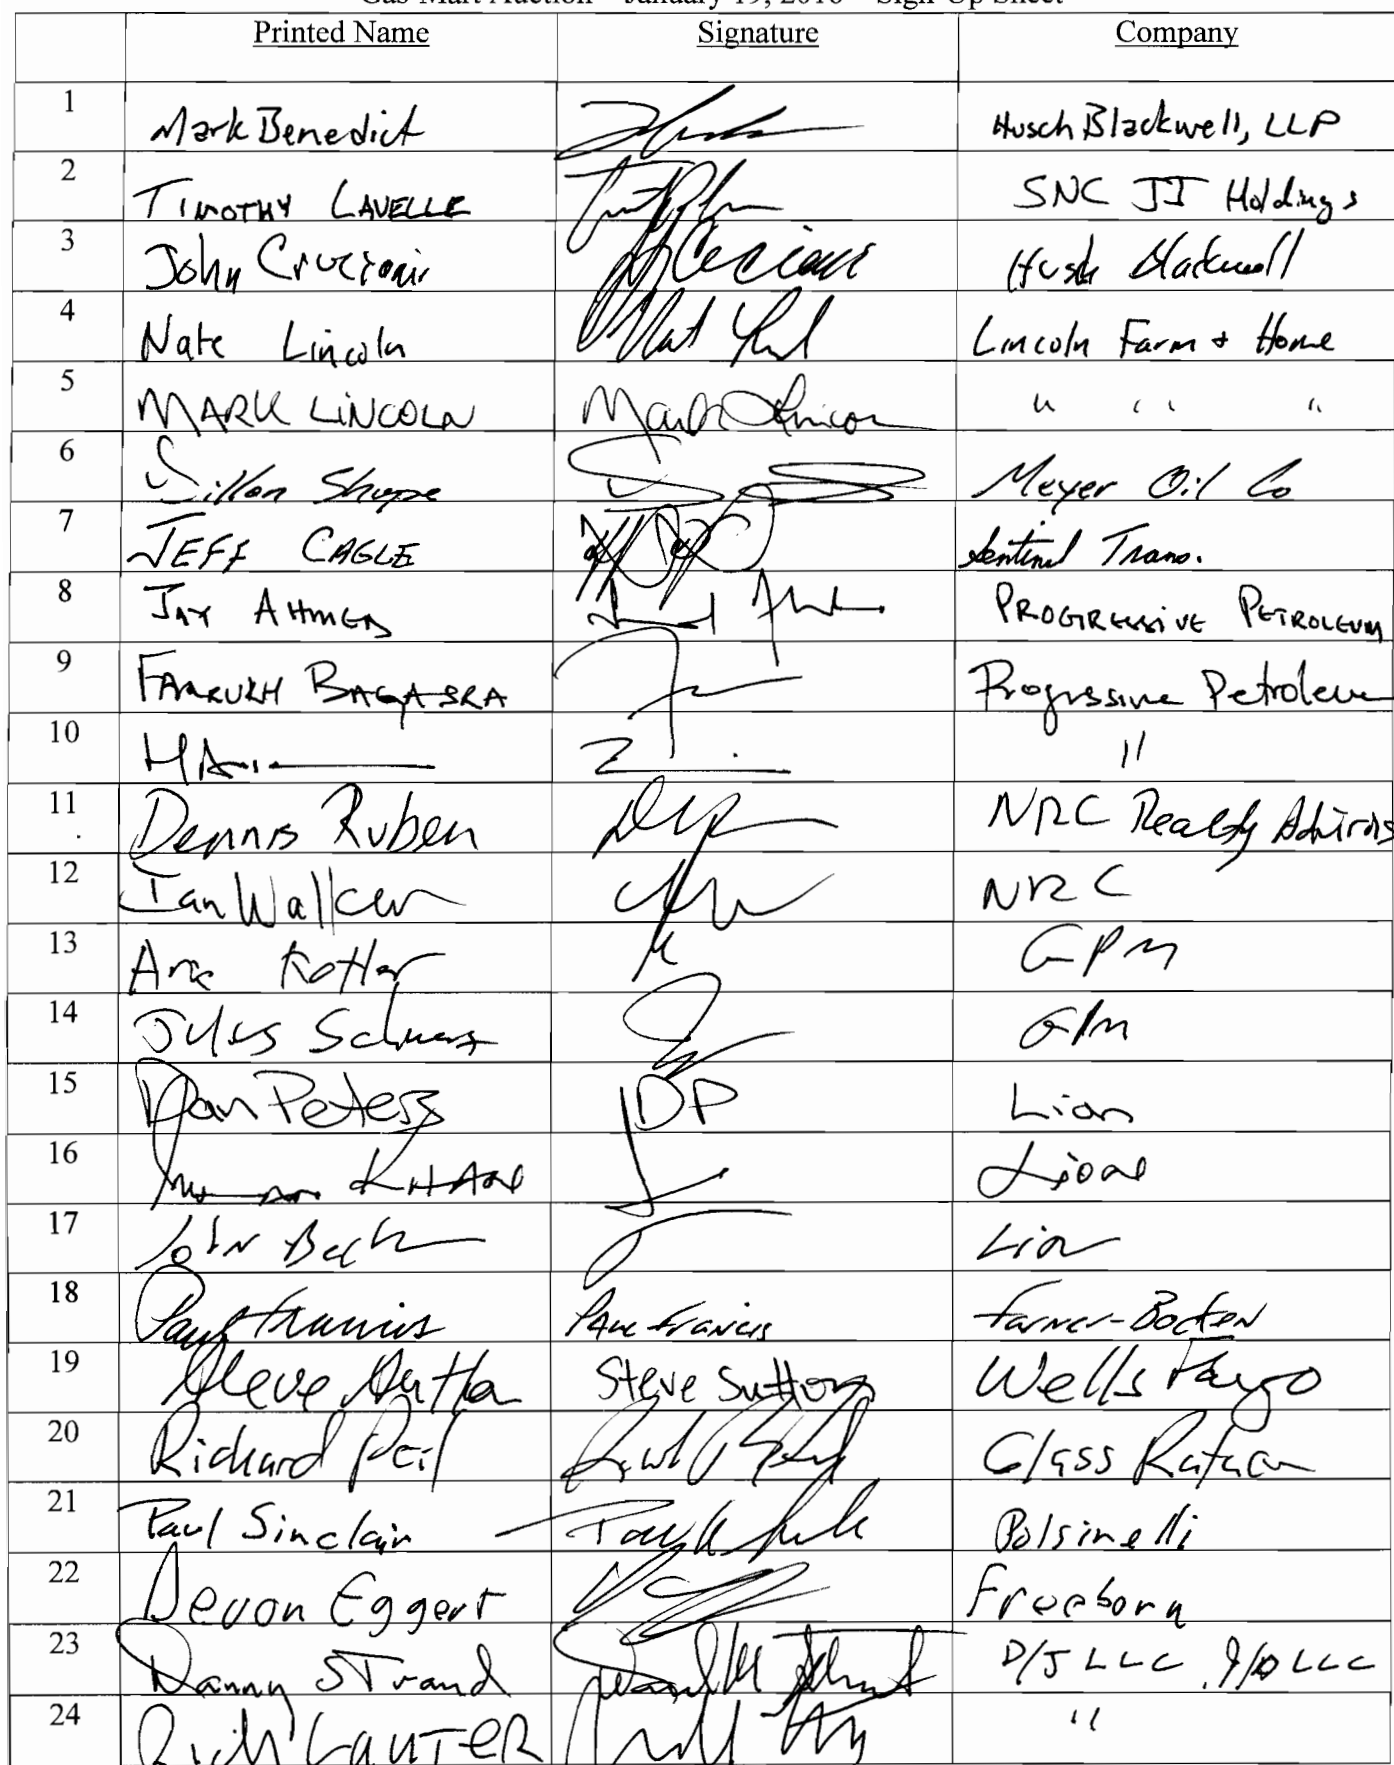 Gas Mart Auction – January 19, 2016 – Sign Up Sheet
Printed Name Signature Company
1 Mark Benedict Husch Blackwell, LLP
2 TIMOTHY LAVELLE SNC JJ Holdings
3 John Cruciani Husch Blackwell
4 Nate Lincoln Lincoln Farm + Home
5 MARK LINCOLN Mark Lincoln " " "
6 Dillon Shupe Meyer Oil Co
7 JEFF CAGLE Sentinel Trans.
8 JAY AHMED PROGRESSIVE PETROLEUM
9 FARRUKH BAGASRA Progressive Petroleum
10 "
11 Dennis Ruben NRC Realty Advisors
12 Ian Walker NRC
13 Arie Kotler GPM
14 Jules Schwarz GPM
15 Dan Peters DP Lion
16 KHAN Lion
17 John Lion
18 Paul Francis PAUL FRANCIS Farner-Bocken
19 Steve Sutton Steve Sutton Wells Fargo
20 Richard Peil Glass Ratner
21 Paul Sinclair Polsinelli
22 Devon Eggert Freeborn
23 Danny STrand D/J LLC J/D LLC
24 Rich LAUTER "